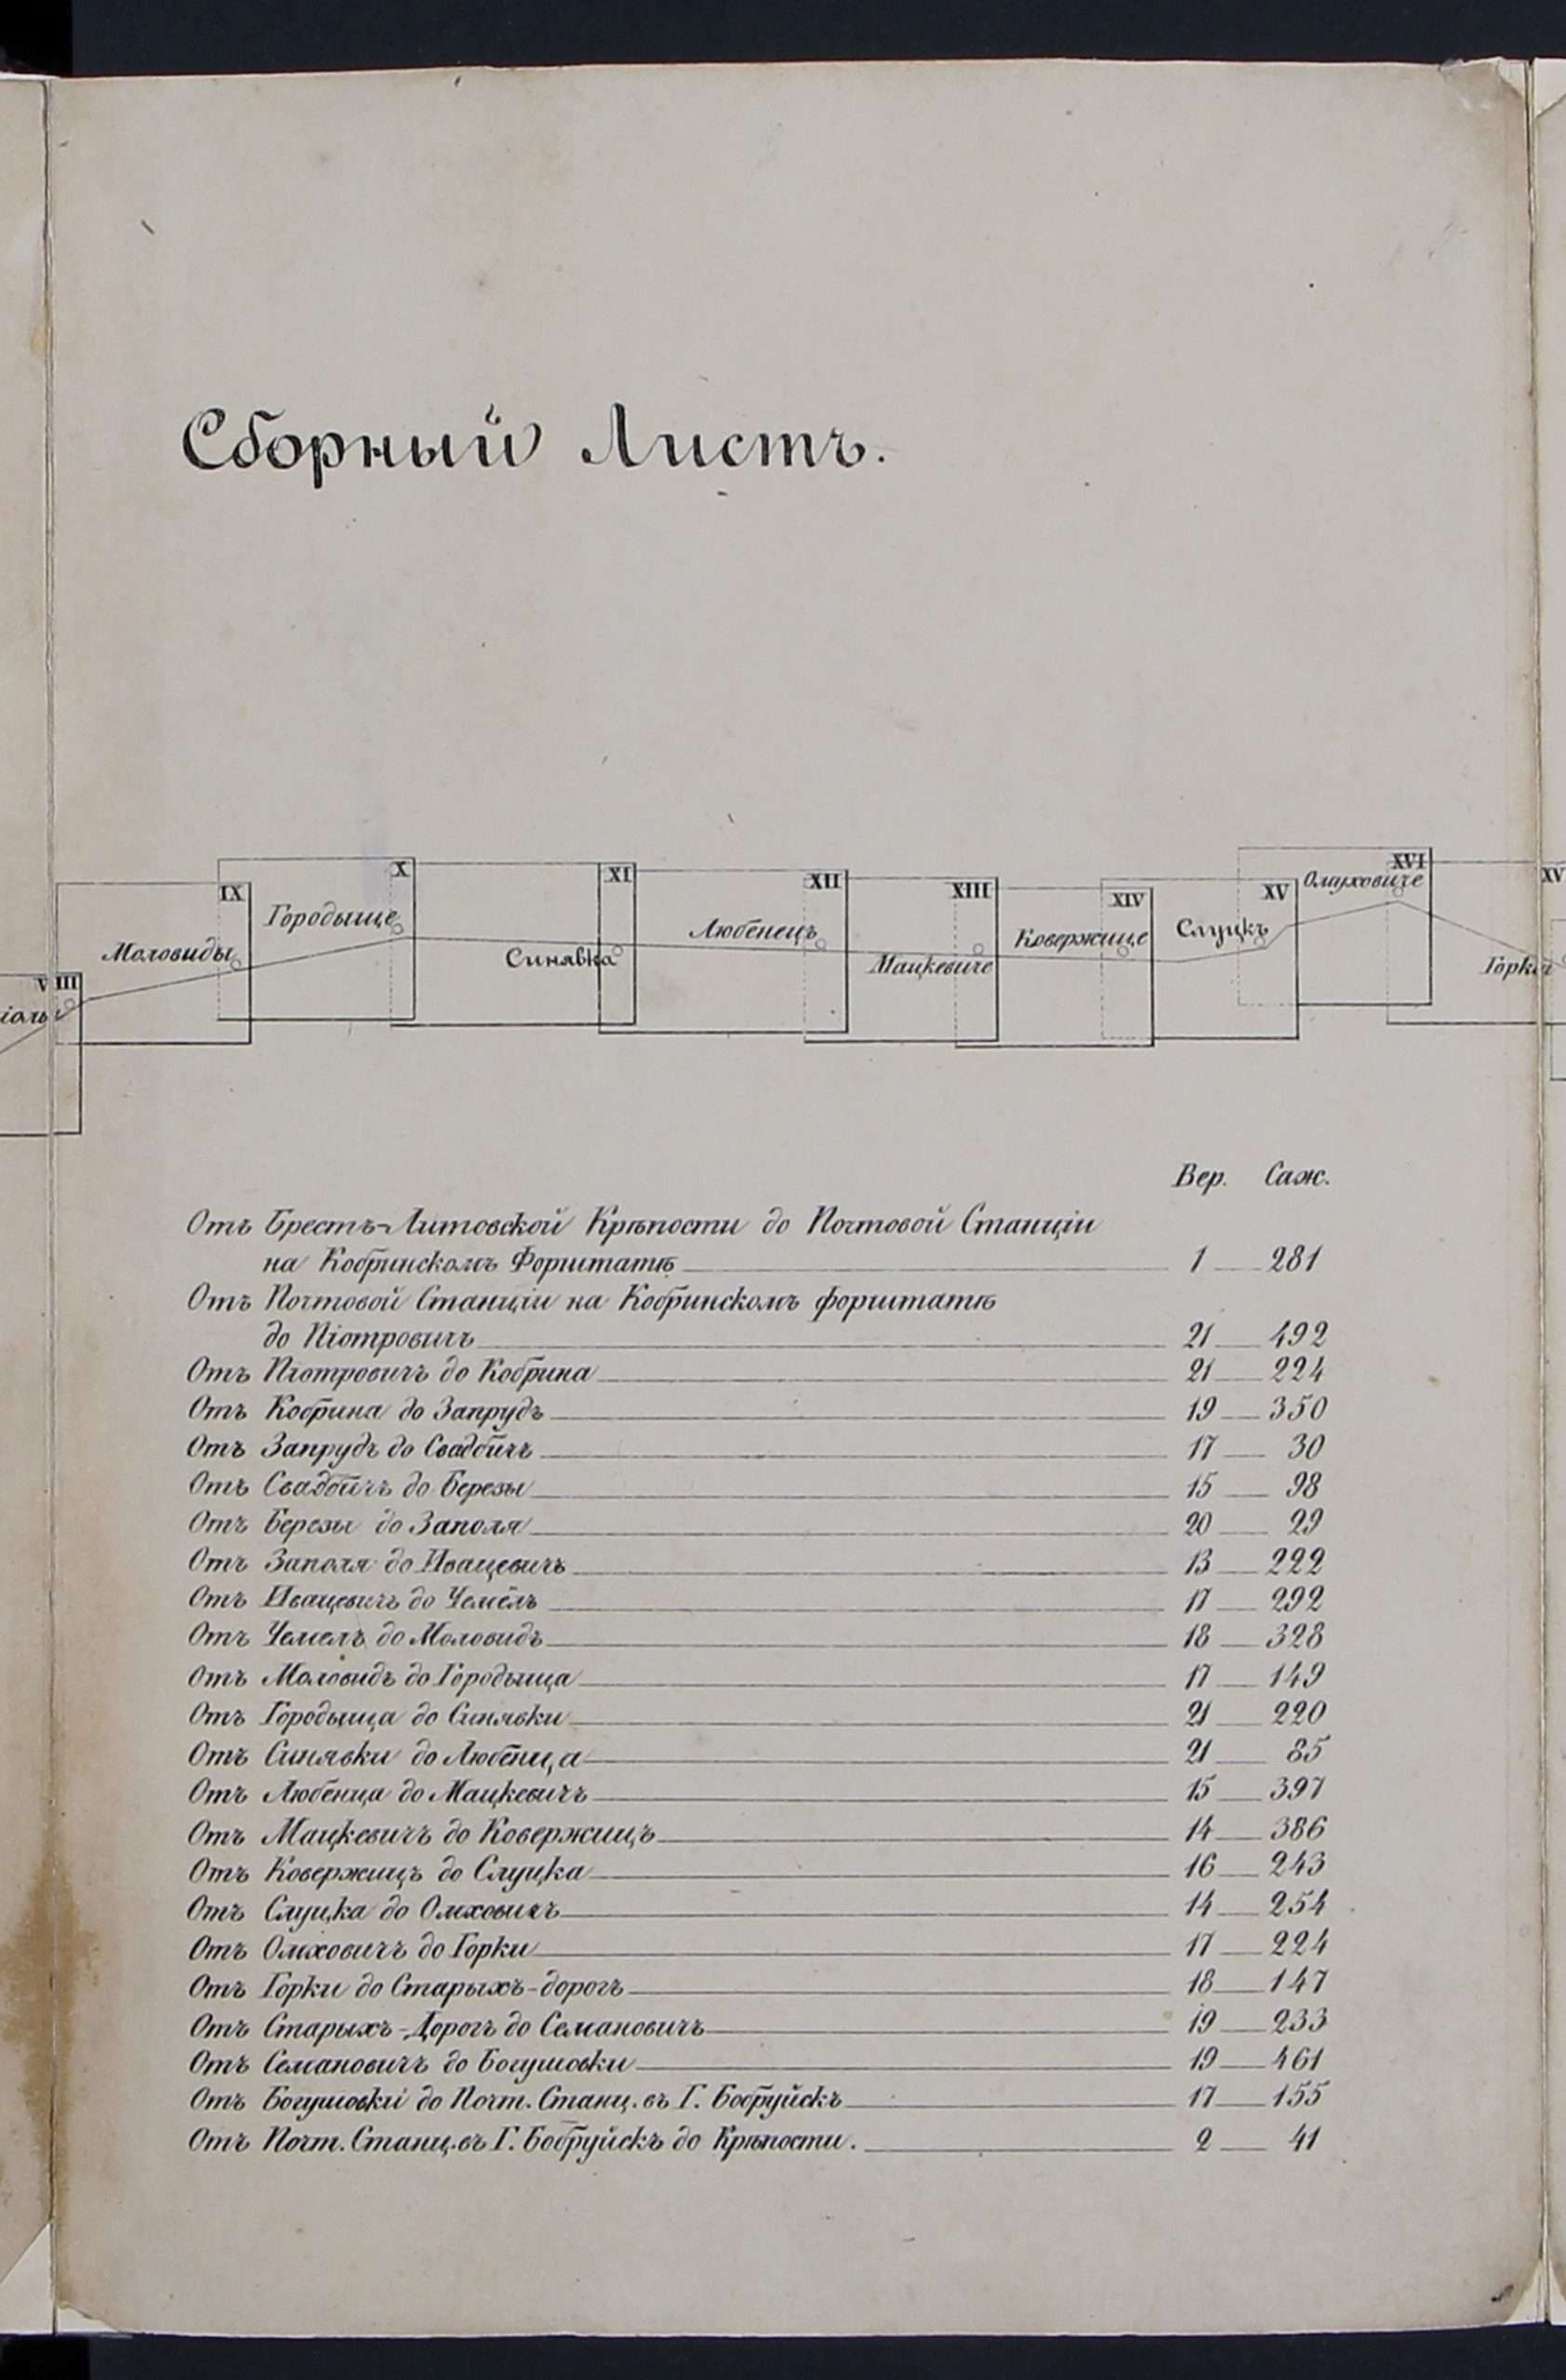 Сборный Листъ.
VIII
IX
X
XI
XII
XIII
XIV
XV
XVI
XV
Моловиды
Городыще
Синявка
Любенецъ
Мацкевиче
Ковержице
Слуцкъ
Омуховиче
Горки
Вер. Саж.
Отъ Брестъ-Литовской Крѣпости до Почтовой Станціи
на Кобринскомъ Форштатѣ 1 281
Отъ Почтовой Станціи на Кобринскомъ форштатѣ
до Піотровичъ 21 492
Отъ Піотровичъ до Кобрина 21 224
Отъ Кобрина до Запрудъ 19 350
Отъ Запрудъ до Свадбичъ 17 30
Отъ Свадбичъ до Березы 15 98
Отъ Березы до Заполя 20 29
Отъ Заполя до Ивацевичъ 13 222
Отъ Ивацевичъ до Чемелъ 17 292
Отъ Чемелъ до Моловидъ 18 328
Отъ Моловидъ до Городыща 17 149
Отъ Городыща до Синявки 21 220
Отъ Синявки до Любенца 21 85
Отъ Любенца до Мацкевичъ 15 397
Отъ Мацкевичъ до Ковержицъ 14 386
Отъ Ковержицъ до Слуцка 16 243
Отъ Слуцка до Омховичъ 14 254
Отъ Омховичъ до Горки 17 224
Отъ Горки до Старыхъ-дорогъ 18 147
Отъ Старыхъ-Дорогъ до Семановичъ 19 233
Отъ Семановичъ до Богушовки 19 461
Отъ Богушовки до Почт. Станц. въ Г. Бобруйскъ 17 155
Отъ Почт. Станц. въ Г. Бобруйскъ до Крѣпости. 2 41